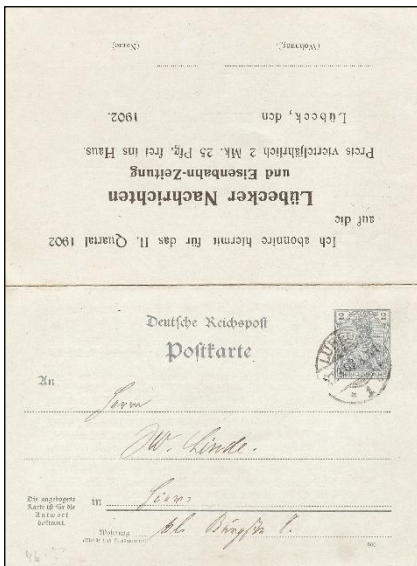 Ich abonnire hiermit für das II. Quartal 1902
auf die
Lübecker Nachrichten
und Eisenbahn-Zeitung
Preis vierteljährlich 2 Mk. 25 Pfg. frei ins Haus.
Lübeck, den 1902.
(Name) (Wohnung)
Deutsche Reichspost
Postkarte
2 2
An Herrn
W. Linde.
Die angebogene
Karte ist für die
Antwort
bestimmt.
in Hier.
Wohnung
(Straße und Hausnummer)
kl. Burgstr.